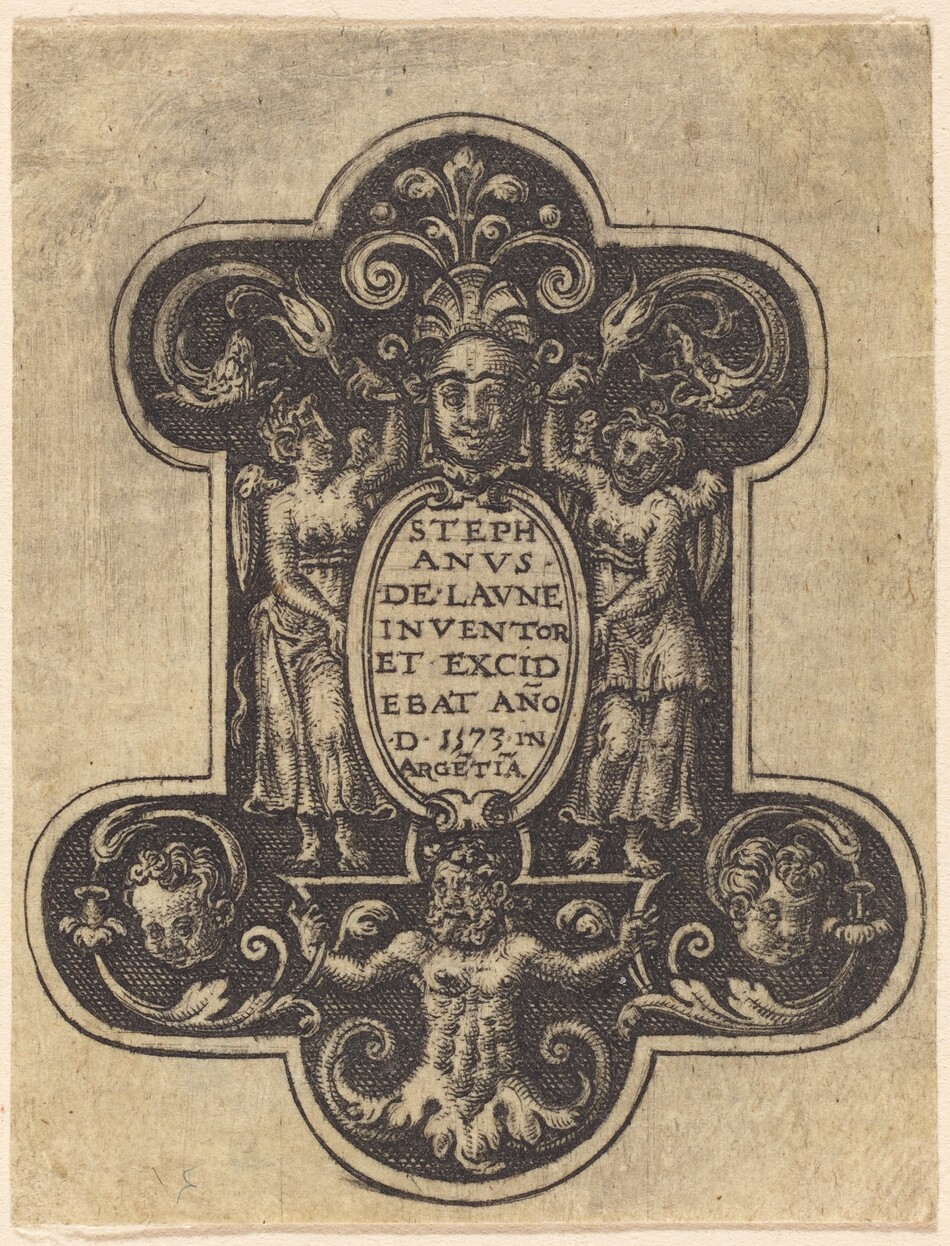 STEPH
ANVS·
·DE·LAVNE
INVENTOR
ET·EXCID
EBAT AÑO
·D·1573·IN
ARGẼTIÃ